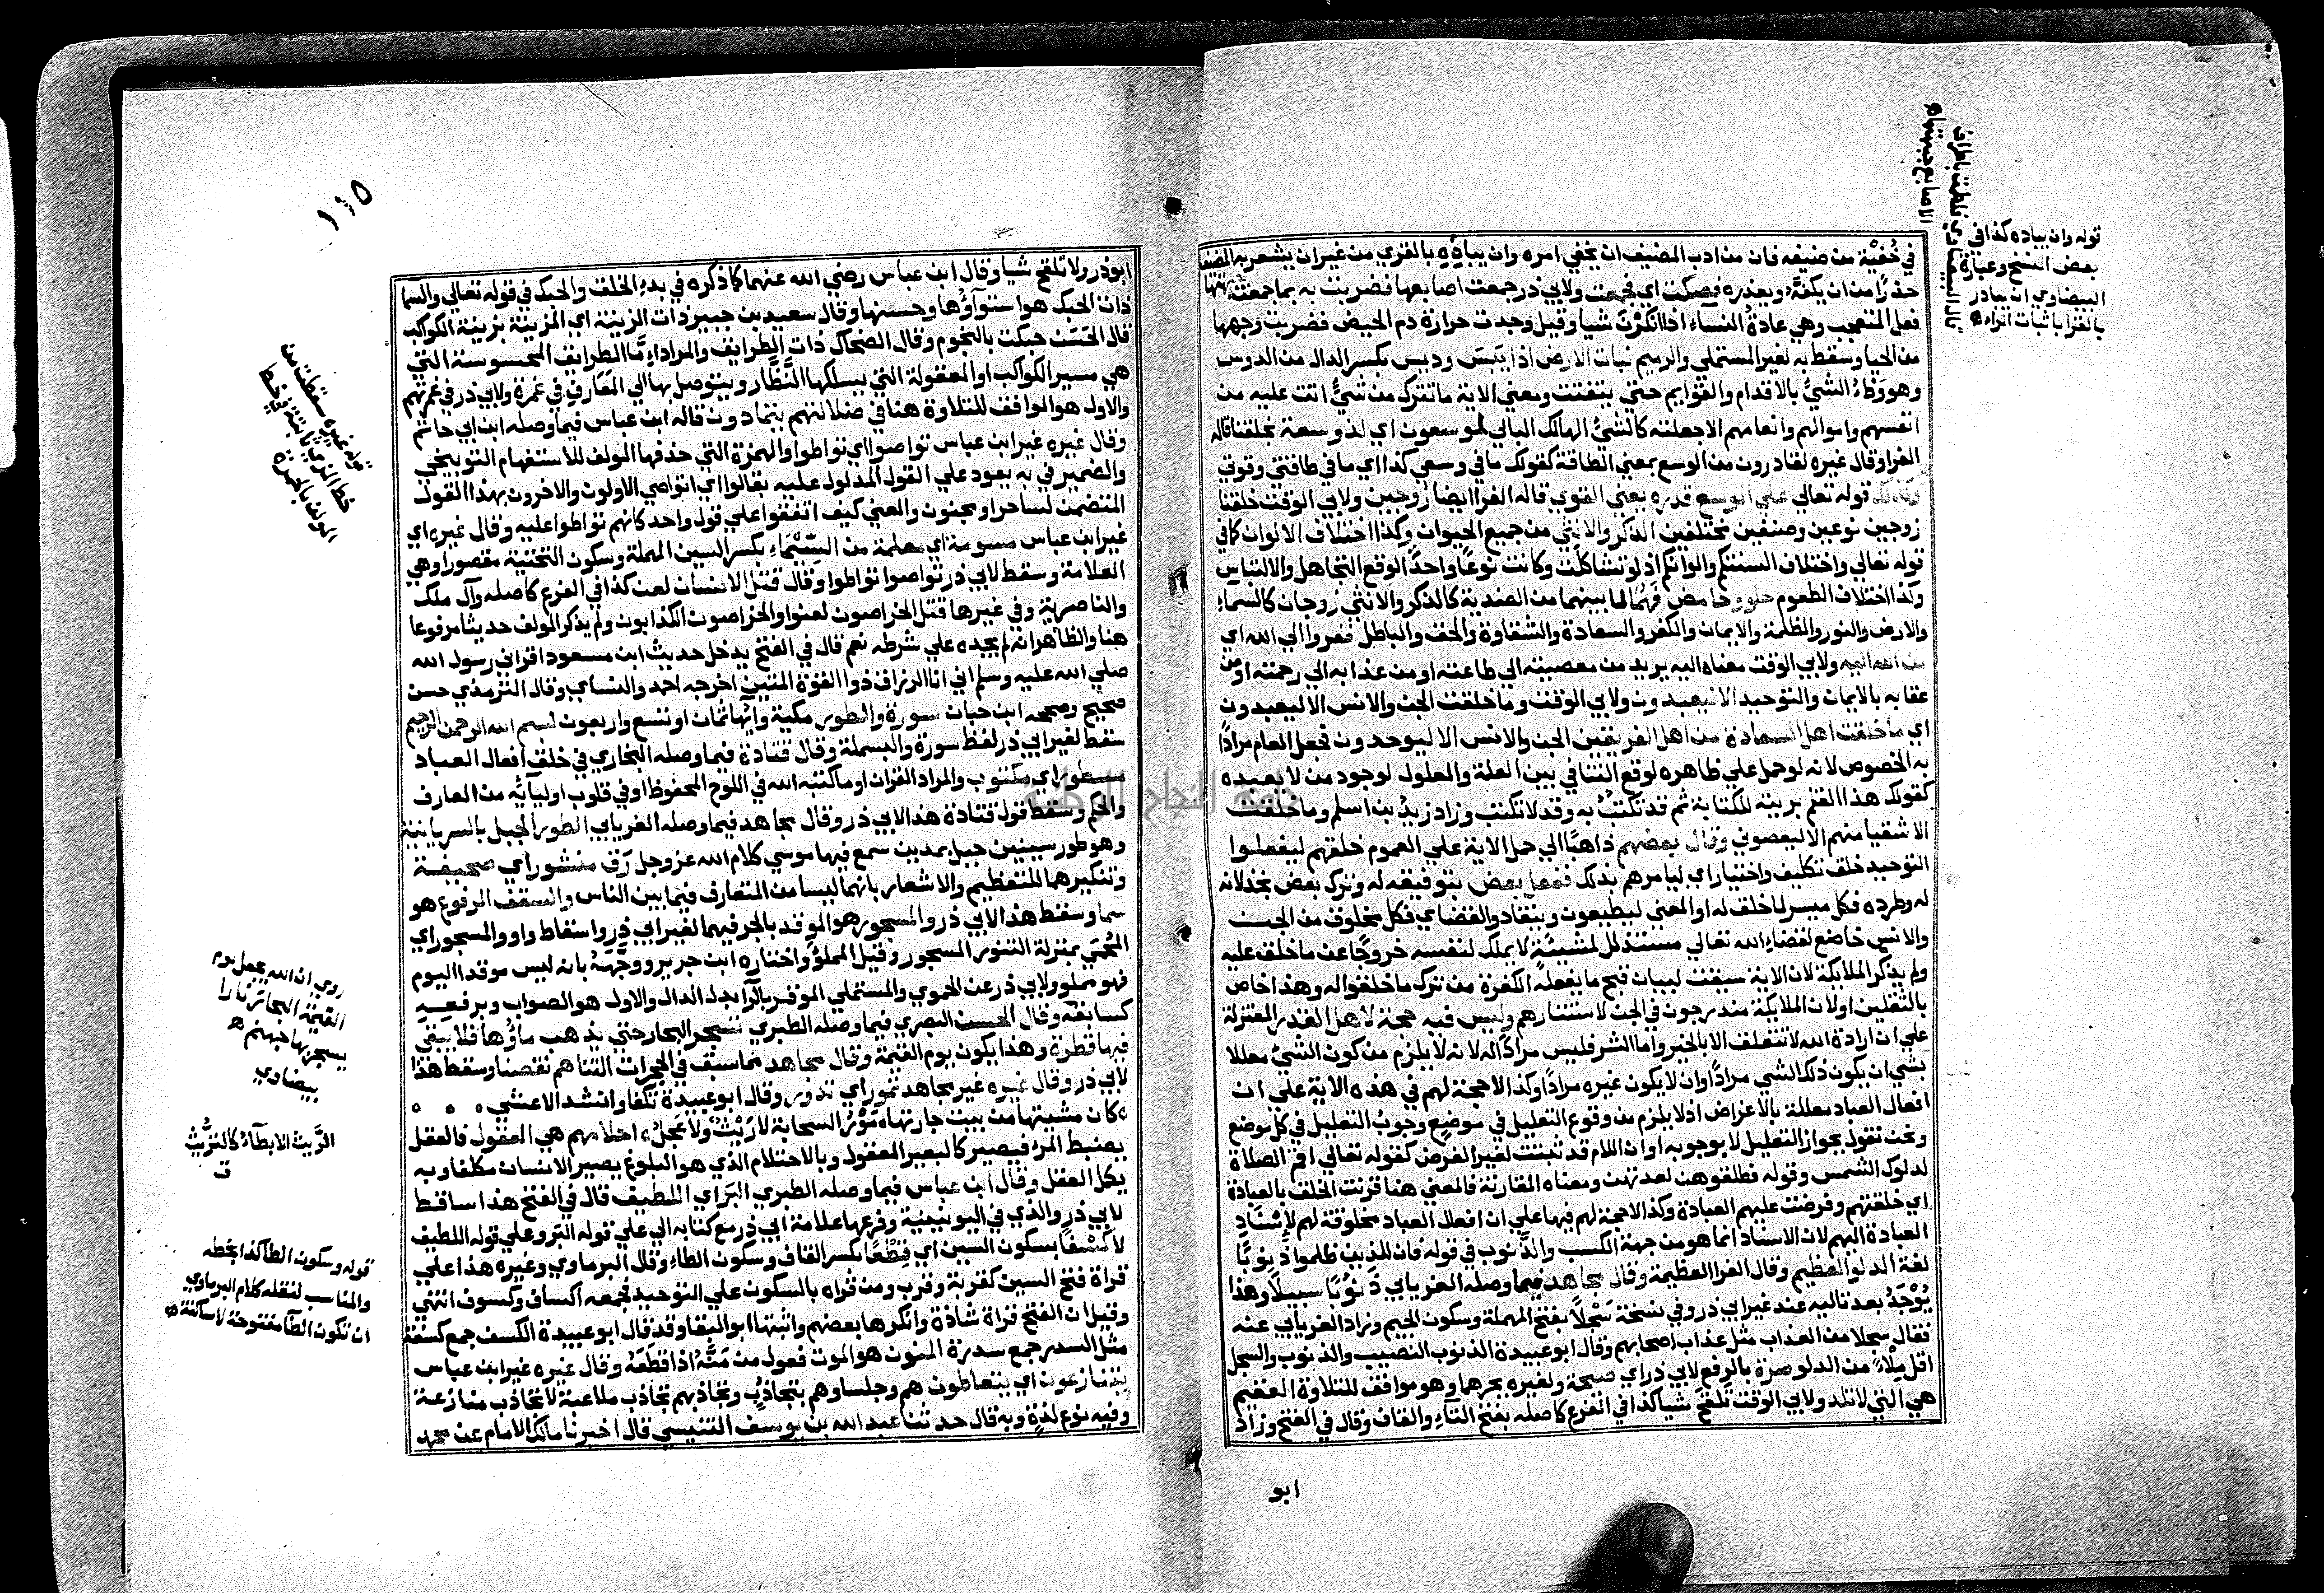 في خُفيَة من ضيفه فان من ادب المضيف ان يخفي امره وان يباده بالقري من غير ان يشعر به الضيف
حذرًا من ان يكفّه ويعذره فصكت اي فجمعت ولابي ذر جمعت اصابعها فضربت به بما جمعت جبهتها
فعل المتعجب وهي عادةُ النساء اذا انكرْنَ شيا وقيل وجدت حرارة دم الحيض فضربت وجهها
من الحيا وسقط به لغير المستملي والرميم نبات الارض اذا يَبَسَ ودِيس بكسر الدال من الدوس
وهو وَطْءُ الشيءُ بالاقدام والقوايم حتي يتفتت ومعني الاية ما تترك من شيءٍ اتت عليه من
انفسهم واموالهم وانعامهم الا جعلته كالشيءُ الهالك البالي لموسعون اي لذو سعة بخلقنا قاله
الفرا وقال غيره لقادرون من الوسع بمعني الطاقة كقولك ما في وسعي كذا اي ما في طاقتي وقوتي
وكذلك قوله تعالي علي الموسع قدره يعني القوي قاله الفرا ايضا زوجين ولابي الوقت خلقنا
زوجين نوعين وصنفين مختلفين الذكر والانثي من جميع الحيوان وكذا اختلاف الالوان كما في
قوله تعالي واختلاف السنتكم والوانكم اذ لو تشاكلت وكانت نوعًا واحدًا لوقع التجاهل والالتباس
وكذا اختلاف الطعوم حلو وحامض فهما لما بينهما من الضدية كالذكر والانثي زوجان كالسماءِ
والارض والنور والظلمة والايمان والكفر والسعادة والشقاوة والحق والباطل ففروا الي الله اي
من الله اليه ولابي الوقت معناه اليه يريد من معصيته الي طاعته او من عذابه الي رحمته او من
عقابه بالايمان والتوحيد الا ليعبدون ولابي الوقت وما خلقت الجن والانس الا ليعبدون
اي ما خلقت اهل السعادة من اهل الفريقين الجن والانس الا ليوحدون فجعل العام مرادًا
به الخصوص لانه لو حمل علي ظاهره لوقع التنافي بين العلة والمعلول لوجود من لا يعبده
كقولك هذا القلم بريته للكتابة ثم قد تكتبُ به وقد لا تكتب وزاد زيدُ بن اسلم وما خلقت
الاشقيا منهم الا ليعصوني وقال بعضهم ذاهبًا الي حمل الاية علي العموم خلقهم ليفعلوا
التوحيد خلق تكليف واختيار اي ليامرهم بذلك ففعل بعض بتوفيقه له وترك بعض بخذلانه
له وطرده فكل ميسر لما خلق له او المعني ليطيعون وينقادوا لقضاي فكل مخلوق من الجن
والانس خاضع لقضاءِ الله تعالي مستذلل لمشيئته لا يملك لنفسه خروجًا عن ما خلق عليه
ولم يذكر الملايكة لان الاية سيقت لبيان قبح ما يفعله الكفرة من ترك ما خلقوا له وهذا خاص
بالثقلين او لان الملايكة مندرجون في الجن لاستتارهم وليس فيه حجة لاهل القدر المعتزلة
علي ان ارادة الله لا تتعلق الا بالخير واما الشر فليس مرادًا له لانه لا يلزم من كون الشيءُ معللا
بشي ان يكون ذلك الشي مرادًا وان لا يكون غيره مرادًا وكذا لا حجة لهم في هذه الاية علي ان
افعال العباد معللة بالاغراض اذ لا يلزم من وقوع التعليل في موضع وجوبُ التعليل في كل موضع
ونحن نقول بجواز التعليل لا بوجوبه او ان اللام قد ثبتت لغير الغرض كقوله تعالي اقم الصلاة
لدلوك الشمس وقوله فطلقوهن لعدتهن ومعناه المقارنة فالمعني هنا قرنت الخلق بالعبادة
اي خلقتهم وفرضت عليهم العبادة وكذا لا حجة لهم فيها علي ان افعال العباد مخلوقة لهم لاسناد
العبادة اليهم لان الاسناد انما هو من جهة الكسب والذّنوب في قوله فان للذين ظلموا ذنوبًا
لغة الدلو العظيم وقال الفرا العظيمة وقال مجاهد فيما وصله الفريابي ذنوبًا سبيلا وهذا
يُوْجَدُ بعد تاليه عند غير ابي ذر وفي نسخة سَجْلًا بفتح المهملة وسكون الجيم وزاد الفريابي عنه
فقال سجلا من العذاب مثل عذاب اصحابهم وقال ابو عبيدة الذنوب النصيب والذنوب والسجل
اقل مِلْاءً من الدلو صرة بالرفع لابي ذر اي صيحة ولغيره بجرهما وهو موافق للتلاوة العقيم
هي التي لا تلد ولابي الوقت تَلقَح شيا كذا في الفرع كاصله بفتح التآءِ والقاف وقال في الفتح وزاد
ابو
قوله وان يباده كذا في
بعض النسخ وعبارة
البيضاوي ان يبادر
بالقرا باثبات الراء ه
قال البيضاوي فلطمت باطراف
الاصابع جبهتها ه
١١٥
ابو ذر ولا تلقح شيا وقال ابن عباس رضي الله عنهما كما ذكره في بدءِ الخلق والحبك في قوله تعالي والسما
ذات الحبك هو استوآؤها وحسنها وقال سعيد بن جبير ذات الزينة اي المزينة بزينة الكواكب
قال الحَسَن حبكت بالنجوم وقال الضحاك ذات الطرايق والمراد اِمَّا الطرايق المحسوسة التي
هي مسير الكواكب او المعقولة التي يسلكها النُّظَّار ويتوصل بها الي المعارف في غمرة ولابي ذر في غمرتهم
والاول هو الموافق للتلاوة هنا في ضلالتهم يتمادون قاله ابن عباس فيما وصله ابن ابي حاتم
وقال غيره غير ابن عباس تواصوا اي تواطوا والهمزة التي حذفها المولف للاستفهام التوبيخي
والضمير في به يعود علي القول المدلول عليه بقالوا اي اتواصي الاولون والاخرون بهذا القول
المتضمن لساحر او مجنون والمعني كيف اتفقوا علي قول واحد كانهم تواطوا عليه وقال غيره اي
غير ابن عباس مسومة اي معلمة من السِّيْماءِ بكسر السين المهملة وسكون التحتية مقصورا وهي
العلامة وسقط لابي ذر تواصوا تواطوا وقال قتل الانسان لعن كذا في الفرع كاصله وآل ملك
والناصرية وفي غيرها قتل الخراصون لعنوا والخراصون الكذابون ولم يذكر المولف حديثا مرفوعا
هنا والظاهر انه لم يجده علي شرطه نعم قال في الفتح يدخل حديث ابن مسعود اقراني رسول الله
صلي الله عليه وسلم اني انا الرزاق ذوا القوة المتين اخرجه احمد والنساي وقال الترمذي حسن
صحيح وصححه ابن حبان سورة والطور مكية وآيها ثمان او تسع واربعون بسم الله الرحمن الرحيم
سقط لغير ابي ذر لفظ سورة والبسملة وقال قتادة فيما وصله البخاري في خلق افعال العباد
مسطور اي مكتوب والمراد القران او ما كتبه الله في اللوح المحفوظ او في قلوب اوليآئه من المعارف
والحكم وسقط قول قتادة هذا لابي ذر وقال مجاهد فيما وصله الفريابي الطور الجبل بالسريانية
وهو طور سينين جبل بمدين سمع فيها موسي كلام الله عز وجل رَق منشور اي صحيفة
وتنكيرهما للتعظيم والاشعار بانهما ليسا من المتعارف فيما بين الناس والسقف المرفوع هو
سما وسقط هذا لابي ذر والمسجور هو الموقد بالجر فيهما لغير ابي ذر واسقاط واو والمسجور اي
المُحْمَي بمنزلة التنور المسجور وقيل المملؤ واختاره ابن جرير ووجَّهَهُ بانه ليس موقدا اليوم
فهو مملو ولابي ذر عن الحموي والمستملي الموقر بالرآ بدل الدال والاول هو الصواب وبرفعه
كسابقه وقال الحسن البصري فيما وصله الطبري تسجر البحار حتي يذهب ماؤُها فلا يبقي
فيها قطرة وهذا يكون يوم القيمة وقال مجاهد مما سبق في الحجرات التناهم نقصنا وسقط هذا
لابي ذر وقال غيره غير مجاهد تمور اي تدور وقال ابو عبيدة تكفا وانشد الاعشي ه ه ه
ه كان مشيتها من بيت جارتها ه مَوْرُ السحابة لا رَيْثٌ ولا عَجَلُ ه احلامهم هي العقول فالعقل
يضبط المرءَ فيصير كالبعير المعقول وبالاحتلام الذي هو البلوغ يصير الانسان مكلفا وبه
يكمل العقل وقال ابن عباس فيما وصله الطبري البَرّاي اللطيف قال في الفتح هذا ساقط
لابي ذر والذي في اليونينية وفرعها علامة ابي ذر مع كتابه الي علي قوله البَر وعلي قوله اللطيف
لا كِسْفًا بسكون السين اي قِطْعًا بكسر القاف وسكون الطاءِ وقال البرماوي وغيره هذا علي
قراة فتح السين كقربة وقرب ومن قراه بالسكون علي التوحيد فجمعه اكساف وكسوف انتهي
وقيل ان الفتح قراة شاذة وانكرها بعضهم واثبتها ابو البقا وقد قال ابو عبيدة الكسف جمع كسفة
مثل السدر جمع سدرة المنون هو الموت فعول من مَنَّهُ اذا قطعَهُ وقال غيره غير ابن عباس
يتنازعون اي يتعاطون هم وجلساوهم بتجاذُبٍ وتجاذبهم تجاذب ملاعبة لا تجاذب منازعة
وفيه نوع لذةٍ وبه قال حدثنا عبد الله بن يوسف التنيسي قال اخبرنا مالك الامام عن محمد
قوله غيره سقطت من
المولف بالحمرة
روي ان الله يجعل يوم
القيمة البحار نارا
يسجر بها جهنم ه
بيضاوي
الرَّيث الابطآءُ كالتريُّث
ق
قوله وسكون الطا كذا بخطه
والمناسب لنقله كلام البرماوي
ان تكون الطآ مفتوحة لا ساكنة ه
جامعة النجاح الوطنية